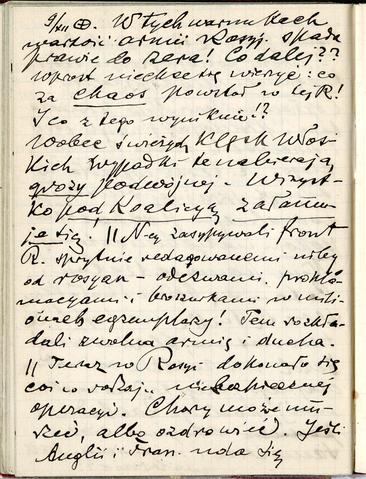 9/XII ⊕. W tych warunkach
wartość armii Rosyj. spada
prawie do zera! Co dalej??
Wprost nie chce się wierzyć: co
za chaos powstał w tej R!
I co z tego wyniknie!?
Wobec świeżych klęsk Włos-
kich wypadki te nabierają
grozy podwójnej. Wszyst-
ko pod Koalicją załamu-
je się. || N-cy zasypywali front
R. sprytnie redagowanemi niby
od rosyan - odezwami, prokla-
macyami i broszurkami w mili-
onach egzemplarzy! Tem rozkła-
dali zwolna armię i ducha.
|| Teraz w Rosyi dokonało się
coś w rodzaju niebezpiecznej
operacyi. Chory może um-
rzeć, albo ozdrowieć. Jeśli
Anglii i Fran. uda się